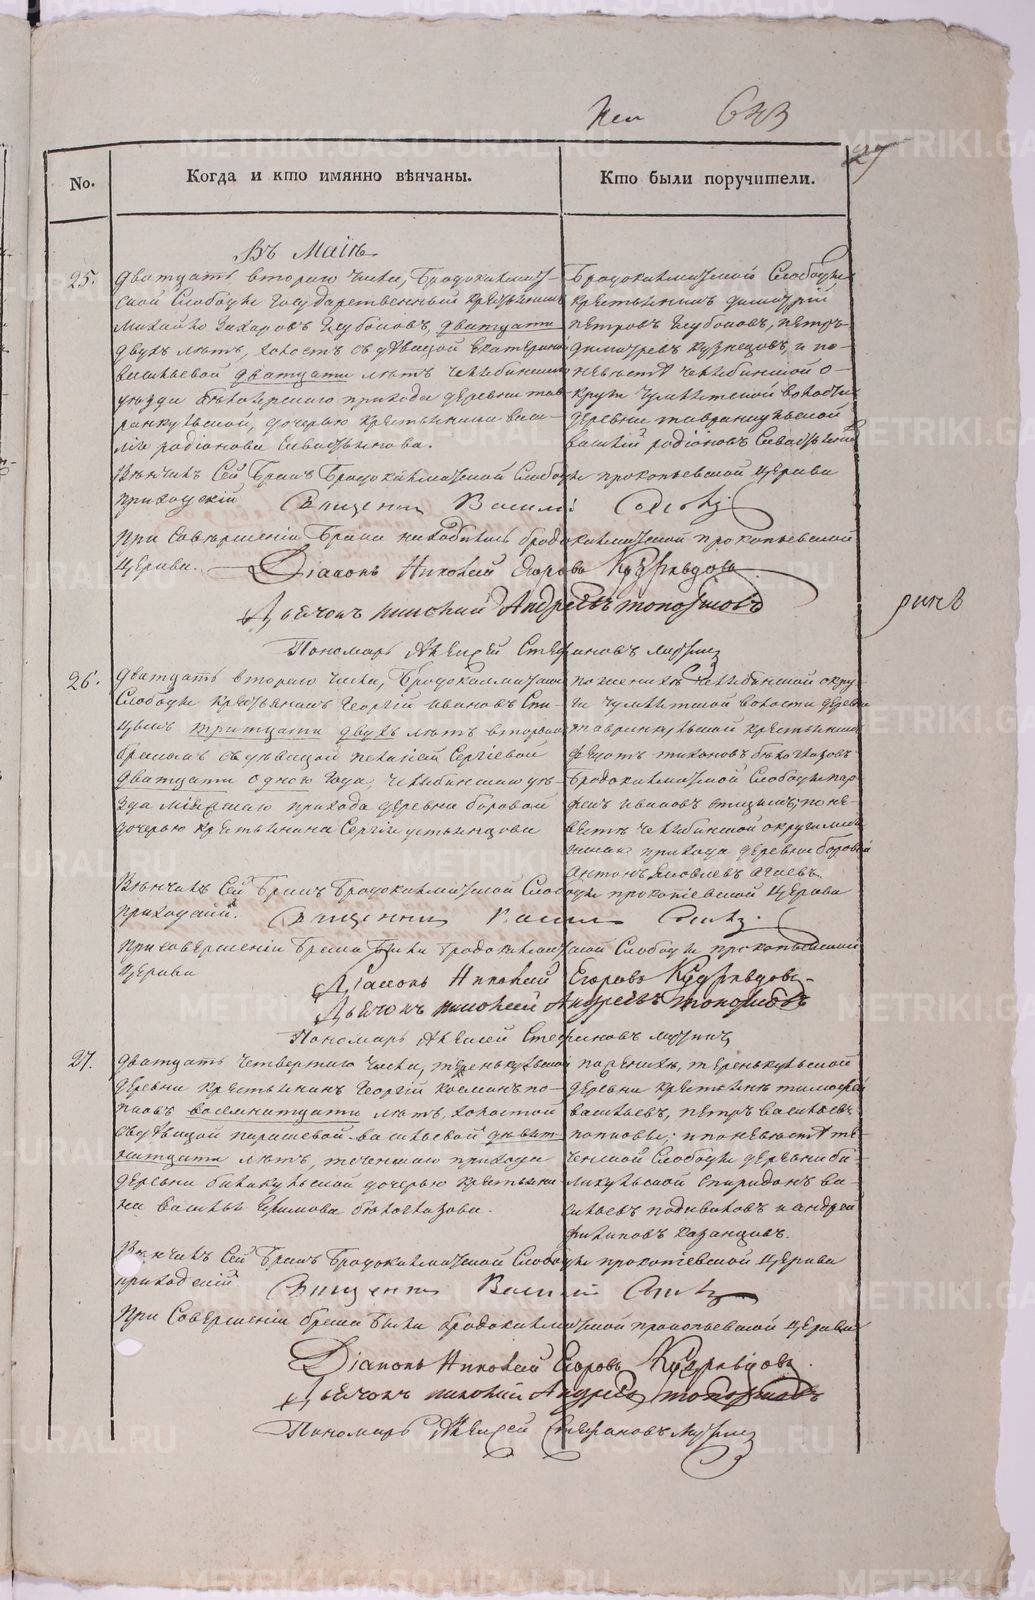 643
27
No.
Когда и кто имянно вѣнчаны.
Кто были поручители.
Въ Маiѣ
25.
Дватцать втораго числа, Бродокалмат-
ской Слободы государственный крестьянинъ
Михайло Захаровъ Глубоковъ, дватцати
двухъ лѣтъ, холостъ съ дѣвицой Екатериной
Васильевой дватцати лѣтъ Челябинскаго
уѣзда Бѣлоярскаго прихода деревни Тав-
ранкульской, дочерью крестьянина Васи-
лiя Родiонова Севастьянова.
Бродокалматской Слободы
крестьянинъ Димитрiй
Петровъ Глубоковъ, Петръ
Димитревъ Кузнецовъ, и по
невѣстѣ Челябинской о-
круги Чумлятской волости
деревни Тавранкульской
Василiй Родiоновъ Севастьяновъ
Вѣнчалъ Сей Бракъ Бродокалматской Слободы прокопьевской церкви
приходскiй Священникъ Василiй
При Совершенiи Брака находились бродокалматской прокопьевской
церкви. Дiаконъ Николай Егоровъ Кудрявцовъ
Дьячокъ Николай Андреевъ Топорковъ
Пономарь Алексей Стефановъ
26.
Дватцать втораго числа, Бродокалматской
Слободы крестьянинъ Георгiй Ивановъ Спи-
цынъ тритцати двухъ лѣтъ вторымъ
бракомъ съ дѣвицой Пелагiей Сергiевой
дватцати одного года, Челябинскаго уѣ-
зда прихода деревни Боровой
дочерью крестьянина Сергiя Устьянцова
по женихѣ Челябинской окру-
ги Чумлятской волости деревни
Тавранкульской крестьянинъ
Федотъ Тихоновъ Бѣлоглазовъ
Бродокалматской Слободы
Ивановъ Спицынъ; по не-
вѣстѣ Челябинской округи
прихода деревни Боровой
Антонъ Яковлевъ Агаевъ.
Вѣнчалъ Сей Бракъ Бродокалматской Слободы прокопiевской церкви
приходскiй Священникъ Василiй
При совершенiи Брака Были Бродокалматской Слободы прокопьевской
церкви Дiаконъ Николай Егоровъ Кудрявцовъ
Дьячокъ Николай Андреевъ Топорковъ
Пономарь Алексей Стефановъ
27.
Дватцать четвертаго числа, Теренькульской
деревни крестьянинъ Георгiй Косминъ По-
повъ восемнатцати лѣтъ, холостой
съ дѣвицой Парасковой Васильевой девят-
натцати лѣтъ, Теченскаго прихода
деревни Баликульской дочерью крестьяни-
на Василья Ефимова Бѣлоглазова.
по женихѣ, Теренькульской
деревни крестьяне Тимофей
Васильевъ, Петръ Васильевъ
Поповы; и по невѣстѣ Те-
ченской Слободы деревни Ба-
ликульской Спиридонъ Ва-
сильевъ Подкиваловъ и Андрей
Филиповъ Казанцовъ.
Вѣнчалъ Сей Бракъ Бродокалматской Слободы прокопiевской церкви
приходскiй Священникъ Василiй
При Совершенiи брака Были бродокалматской прокопьевской церкви
Дiаконъ Николай Егоровъ Кудрявцовъ
Дьячокъ Николай Андреевъ Топорковъ
Пономарь Алексей Стефановъ
METRIKI.GASO-URAL.RU